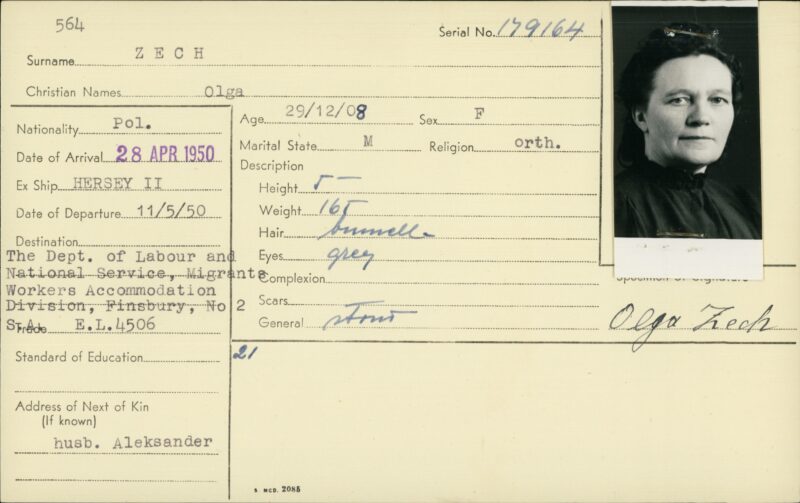 564
Serial No. 179164
Surname ZECH
Christian Names Olga
Nationality Pol.
Date of Arrival 28 APR 1950
Ex Ship HERSEY II
Date of Departure 11/5/50
Destination
The Dept. of Labour and
National Service, Migrants
Workers Accommodation
Division, Finsbury, No 2
S.A. E.L.4506
Trade
Standard of Education
Address of Next of Kin
(If known)
husb. Aleksander
Age 29/12/08 Sex F
Marital State M Religion orth.
Description
Height 5 —
Weight 165
Hair
Eyes grey
Complexion
Scars
General stout
21
Specimen of Signature
Olga Zech
S MCD. 2085